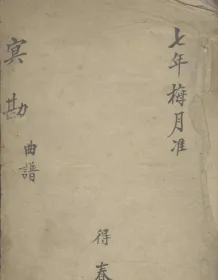 七年梅月准
冥勘
曲譜
得春